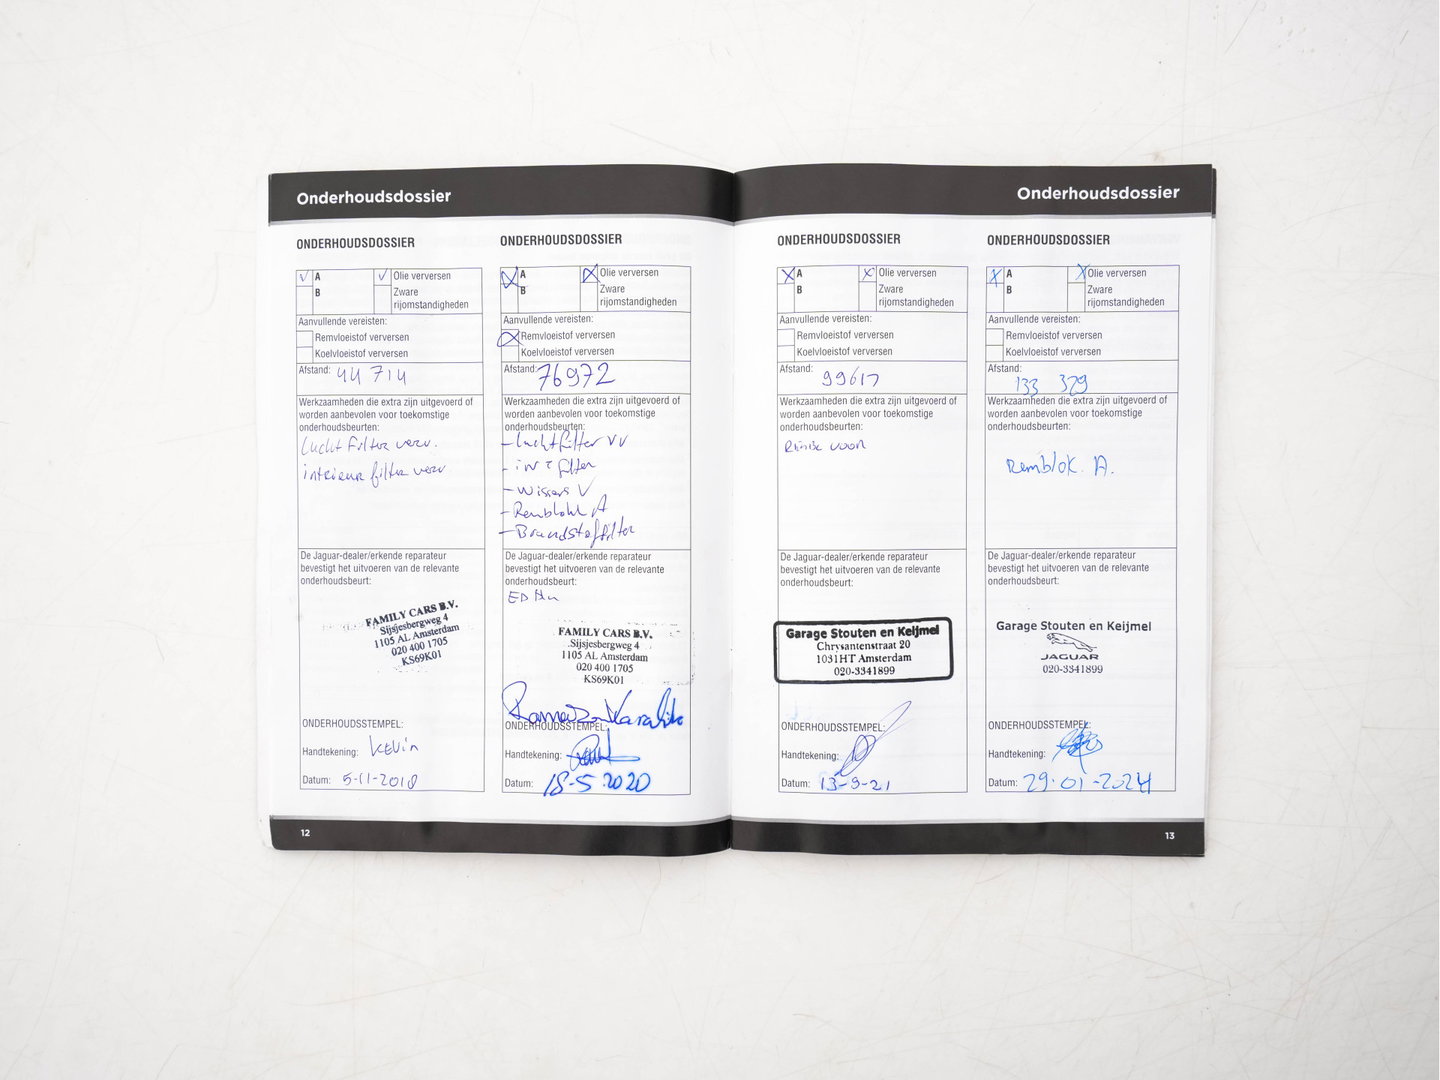 Onderhoudsdossier
ONDERHOUDSDOSSIER
A
Olie verversen
B
Zware
rijomstandigheden
Aanvullende vereisten:
Remvloeistof verversen
Koelvloeistof verversen
Afstand: 44 714
Werkzaamheden die extra zijn uitgevoerd of
worden aanbevolen voor toekomstige
onderhoudsbeurten:
Lucht filter verv.
intrieur filter verv
De Jaguar-dealer/erkende reparateur
bevestigt het uitvoeren van de relevante
onderhoudsbeurt:
FAMILY CARS B.V.
Sijsjesbergweg 4
1105 AL Amsterdam
020 400 1705
KS69K01
ONDERHOUDSSTEMPEL:
Handtekening: Kevin
Datum: 5-11-2018
ONDERHOUDSDOSSIER
A
Olie verversen
B
Zware
rijomstandigheden
Aanvullende vereisten:
Remvloeistof verversen
Koelvloeistof verversen
Afstand: 76972
Werkzaamheden die extra zijn uitgevoerd of
worden aanbevolen voor toekomstige
onderhoudsbeurten:
- Luchtfilter VV
- int filter
- Wissers V
- Remblokk A
- Brandstoffilter
De Jaguar-dealer/erkende reparateur
bevestigt het uitvoeren van de relevante
onderhoudsbeurt:
FAMILY CARS B.V.
Sijsjesbergweg 4
1105 AL Amsterdam
020 400 1705
KS69K01
ONDERHOUDSSTEMPEL:
Handtekening:
Datum: 18-5-2020
12
Onderhoudsdossier
ONDERHOUDSDOSSIER
A
Olie verversen
B
Zware
rijomstandigheden
Aanvullende vereisten:
Remvloeistof verversen
Koelvloeistof verversen
Afstand: 99617
Werkzaamheden die extra zijn uitgevoerd of
worden aanbevolen voor toekomstige
onderhoudsbeurten:
voor
De Jaguar-dealer/erkende reparateur
bevestigt het uitvoeren van de relevante
onderhoudsbeurt:
Garage Stouten en Keijmel
Chrysantenstraat 20
1031HT Amsterdam
020-3341899
ONDERHOUDSSTEMPEL:
Handtekening:
Datum: 13-9-21
ONDERHOUDSDOSSIER
A
Olie verversen
B
Zware
rijomstandigheden
Aanvullende vereisten:
Remvloeistof verversen
Koelvloeistof verversen
Afstand: 133 329
Werkzaamheden die extra zijn uitgevoerd of
worden aanbevolen voor toekomstige
onderhoudsbeurten:
Remblok. A.
De Jaguar-dealer/erkende reparateur
bevestigt het uitvoeren van de relevante
onderhoudsbeurt:
Garage Stouten en Keijmel
JAGUAR
020-3341899
ONDERHOUDSSTEMPEL:
Handtekening:
Datum: 29-01-2024
13